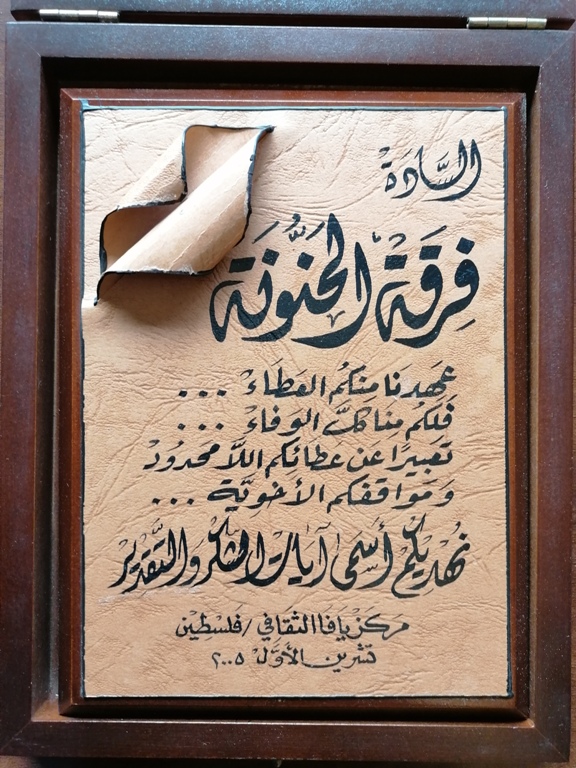 السَّادَة
فِرقَة الحَنُّونَة
عَهِدنَا مِنكُم العَطَاءَ ...
فَلَكُم مِنا كلَّ الوَفاءَ ...
تَعبيرًا عَن عَطائكم اللاَّ محَدودْ
وَمَواقفكم الأخويَّة ...
نُهديكُم أسمَى آيات الشكر والتَّقدِير
مَركز يَافا الثقَافي / فَلسطِين
تشرين الأوَّل ٢٠٠٥